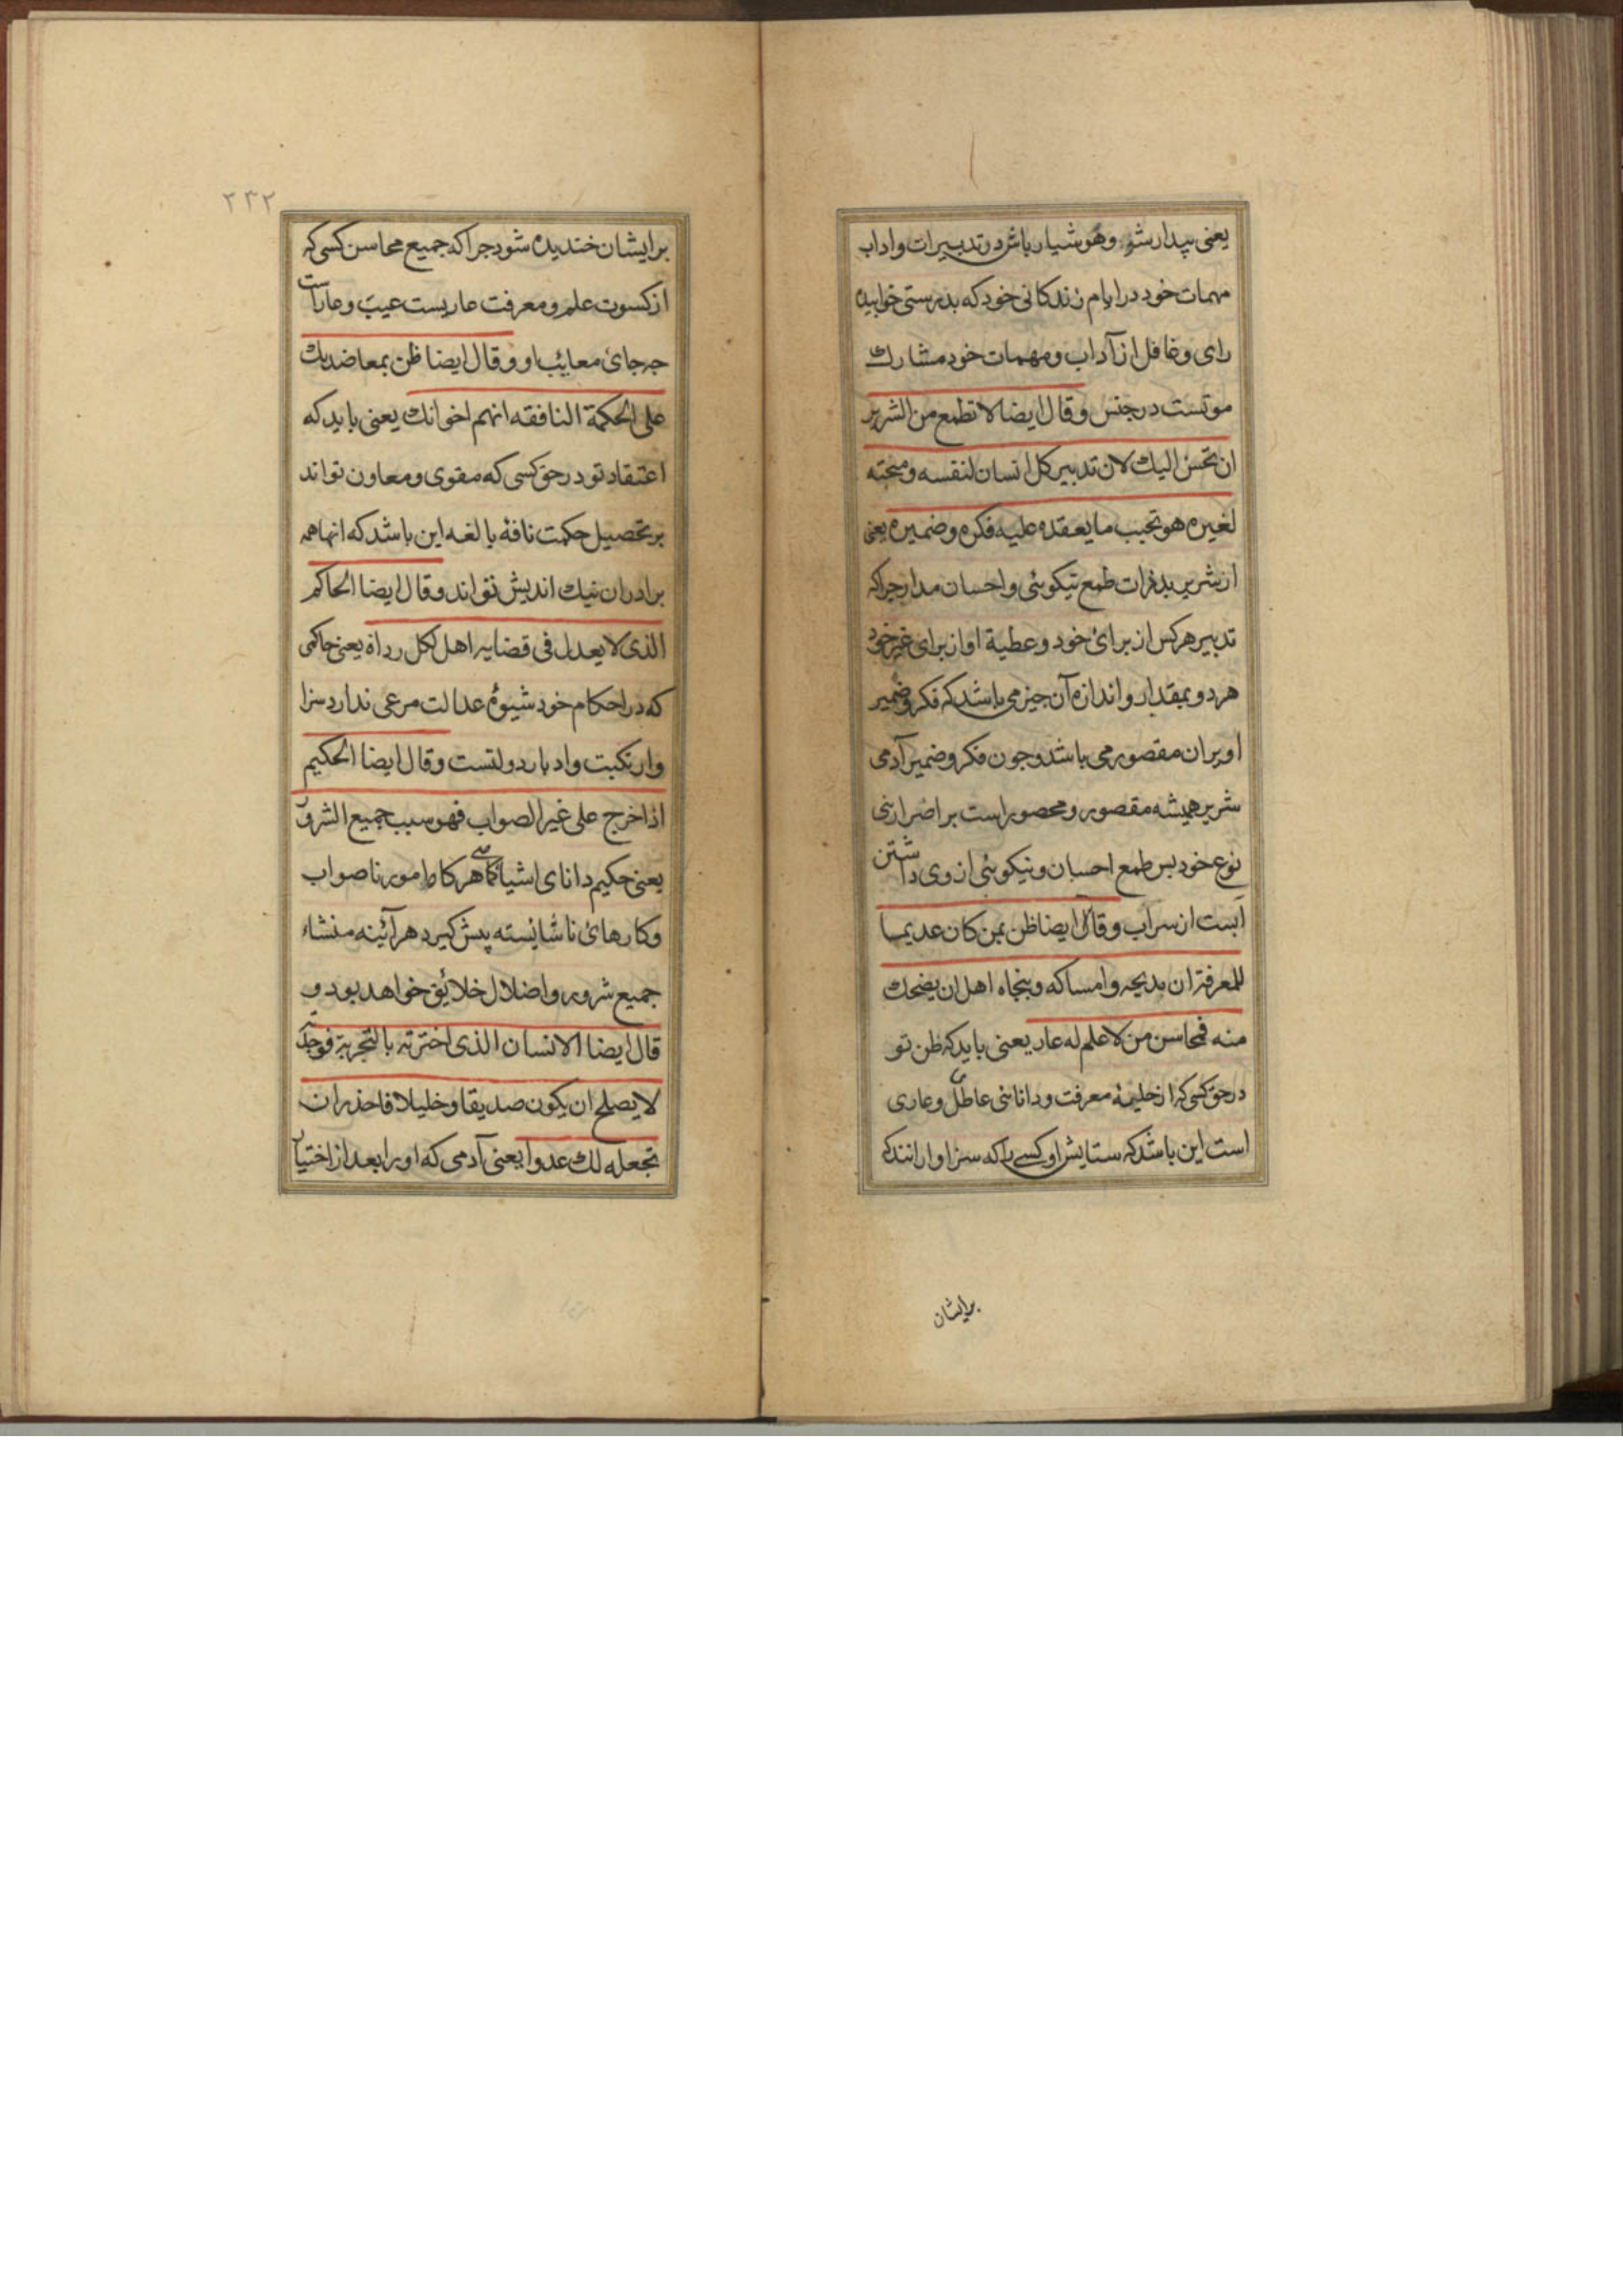 یعنی بیدار شو و هوشیار باش در تدبیرات و اداب
مهمات خود در ایام زندکانی خود که بدرستی خوابیده
رای و غافل از آداب و مهمات خود مشارك
موتست در جنس و قال ایضا لا تطمع من الشریر
ان یحسن الیك لان تدبیر کل انسان لنفسه و منحته
لغیره هو بحسب ما یعقده علیه فکره و ضمیره یعنی
از شریر بدذات طمع نیکوئی و احسان مدار جراکه
تدبیر هرکس از برای خود و عطیة او از برای غیر خود
هر دو بمقدار و اندازه آن جیز می باشد که فکر و ضمیر
او بران مقصور می باشد و جون فکر و ضمیر آدمی
شریر همیشه مقصور و محصور است بر اضرار بنی
نوع خود بس طمع احسان و نیکوئی از وی داشتن
آبست از سراب و قال ایضا ظن بمن کان عدیما
للمعرفة ان مدیحه و امساکه و بنجاه اهل ان یضحك
منه فمحاسن من لا علم له عار یعنی باید که ظن تو
در حق کسی که از حلیهٔ معرفت و دانائی عاطل و عاری
است این باشد که ستایش او کسی را که سزاوار انند که
برایشان
۲۳۲
برایشان خندیده شود جراکه جمیع محاسن کسی که
از کسوت علم و معرفت عاریست عیب و عار است
جه جای معائب او و قال ایضا ظن بمعاضدیك
علی الحکمة النافقه انهم اخوانك یعنی باید که
اعتقاد تو در حق کسی که مقوی و معاون تواند
بر تحصیل حکمت نافهٔ بالغه این باشد که انها همه
برادران نیك اندیش تواند و قال ایضا الحاکم
الذی لا یعدل فی قضایه اهل لکل رداة یعنی حاکمی
که در احکام خود شیوهٔ عدالت مرعی ندارد سزا
وار نکبت و ادبار دولتست و قال ایضا الحکیم
اذا خرج علی غیر الصواب فهو سبب جمیع الشرور
یعنی حکیم دانای اشیا کماهی هرکاه امور ناصواب
و کارهای ناشایسته پیش کیرد هرآئینه منشاء
جمیع شرور و اضلال خلائق خواهد بود و
قال ایضا الانسان الذی اخترته بالتجربة فوجدته
لا یصلح ان یکون صدیقا و خلیلا فاحذر ان
تجعله لك عدوا یعنی آدمی که او را بعد از اختیار